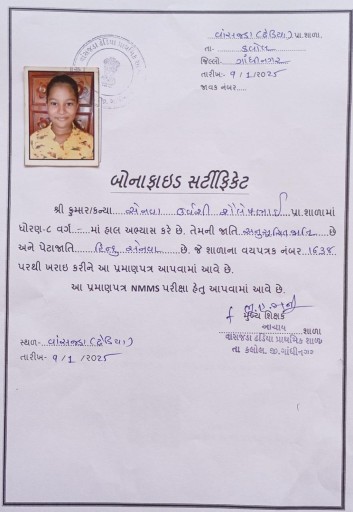 વાંસજડા (ઢેડિયા) પ્રા.શાળા.
તા- કલોલ
જિલ્લો- ગાંધીનગર
તારીખ- 9/1/2025
જાવક નંબર....
બોનાફાઇડ સર્ટીફિકેટ
શ્રી કુમાર/કન્યા સેનવા ઉર્વશી શૈલેષભાઈ પ્રા.શાળામાં
ધોરણ-૮ વર્ગ - માં હાલ અભ્યાસ કરે છે. તેમની જાતિ અનુસૂચિતજાતિ છે
અને પેટાજાતિ હિન્દુ સેનવા છે. જે શાળાના વયપત્રક નંબર 1634
પરથી ખરાઇ કરીને આ પ્રમાણપત્ર આપવામાં આવે છે.
આ પ્રમાણપત્ર NMMS પરીક્ષા હેતુ આપવામાં આવે છે.
મુખ્ય શિક્ષક
આચાર્ય
શાળા
વાંસજડા ઢેડિયા પ્રાથમિક શાળા
તા. કલોલ, જી.ગાંધીનગર
સ્થળ- વાંસજડા (ઢેડિયા)
તારીખ- 9/1/2025